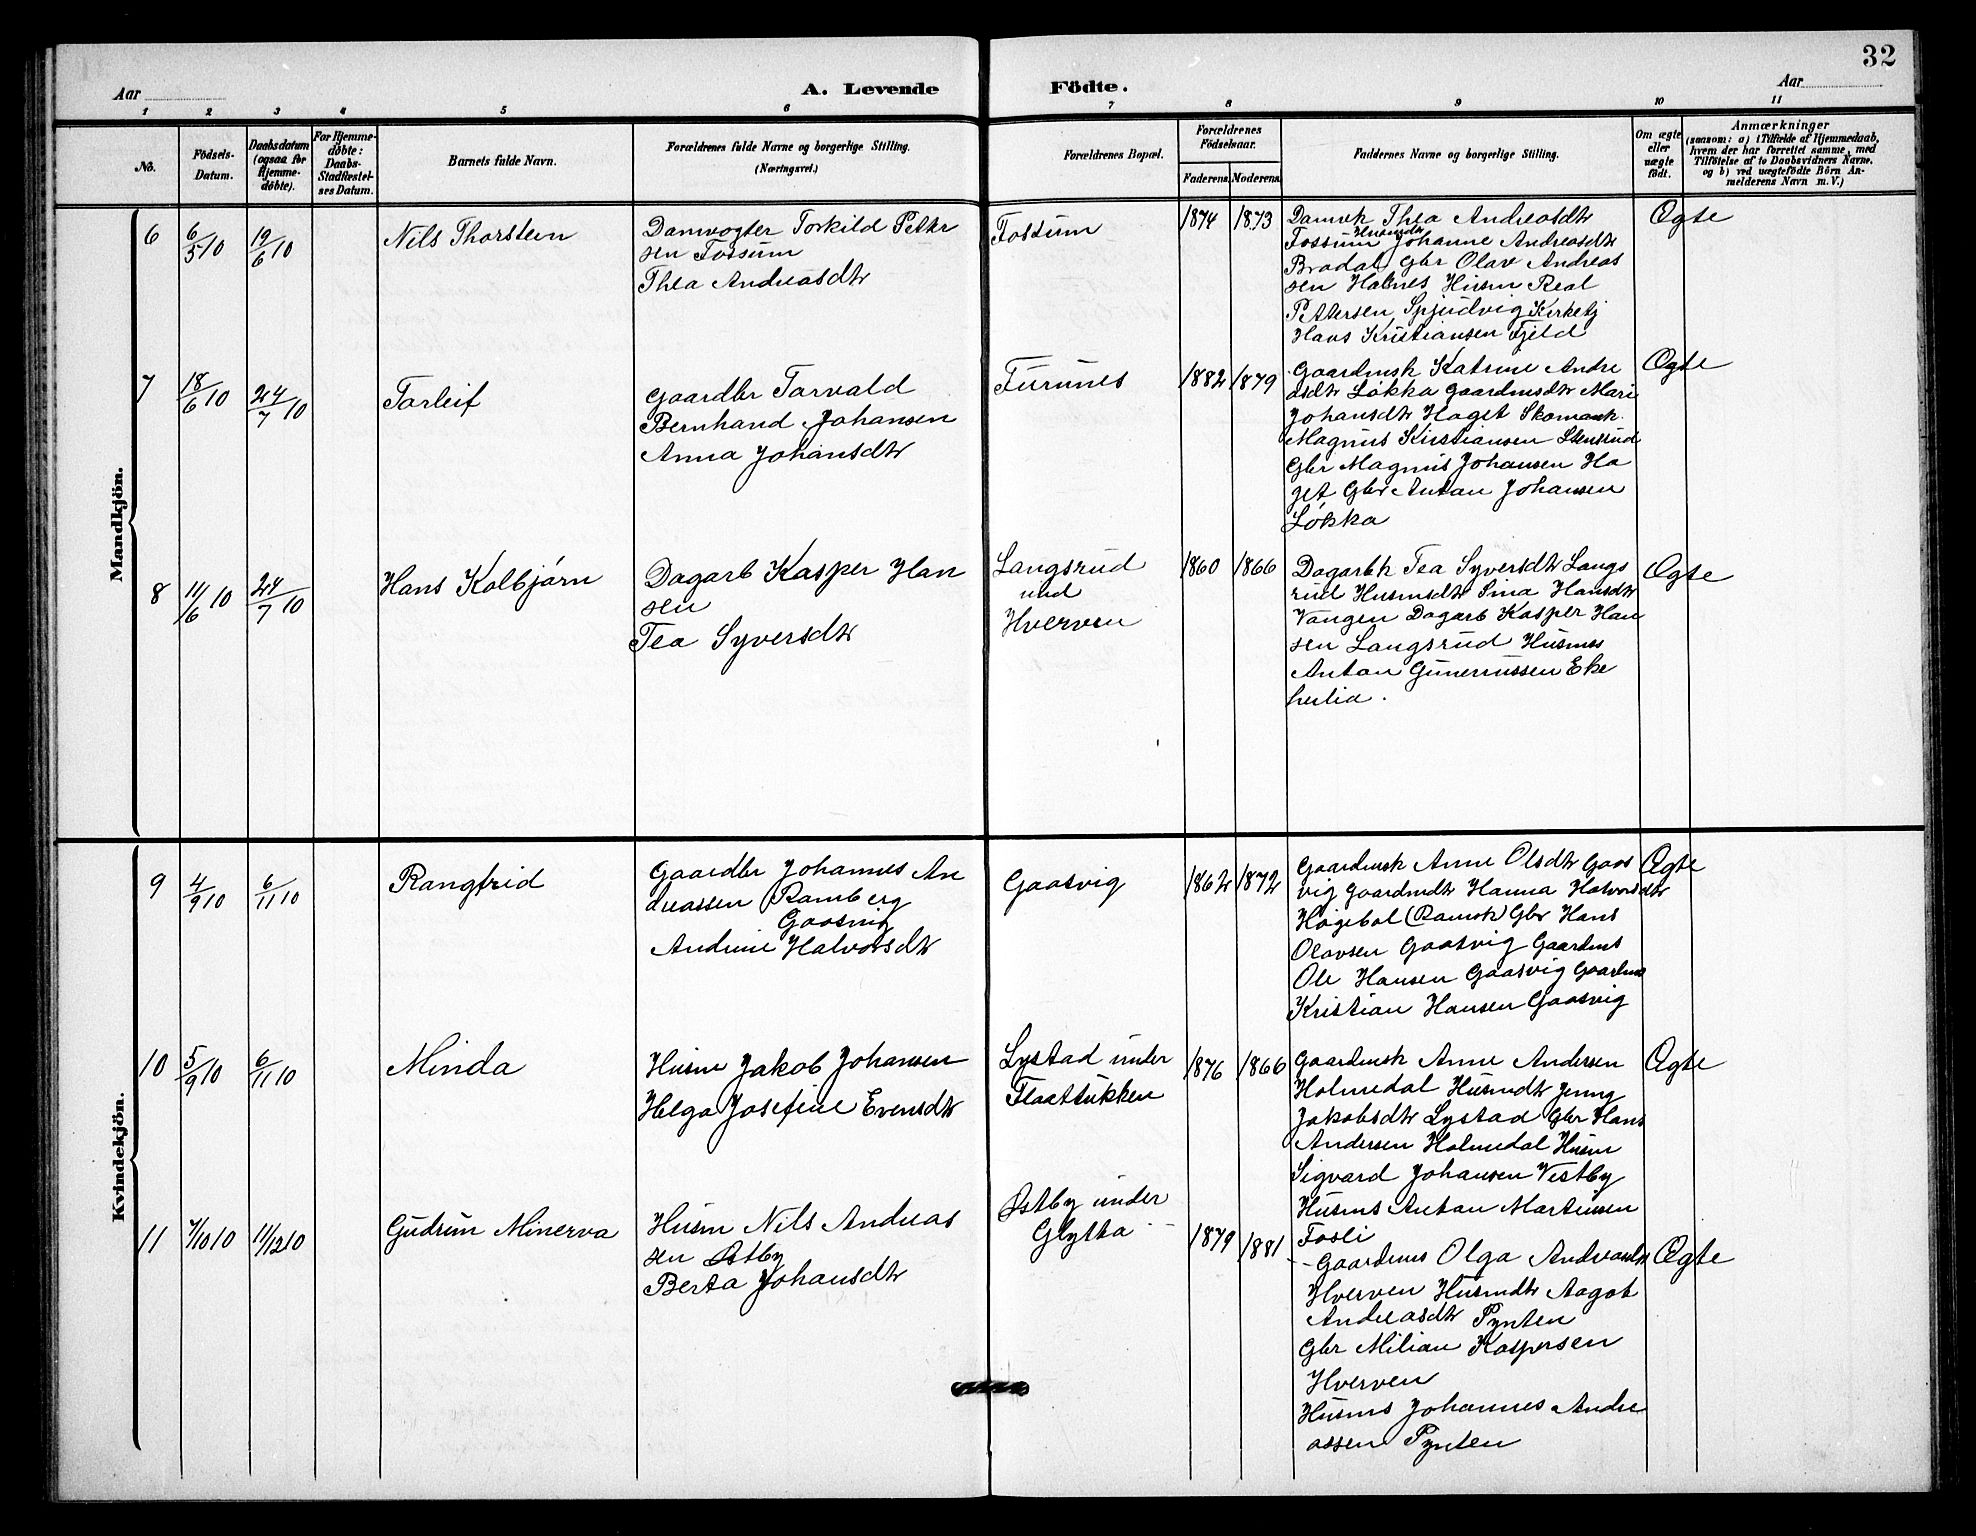 32
Aar
A. Levende
Födte.
Aar
1 2 3 4 5 6 7 8 9 10 11
No.
Födsels-
Datum.
Daabsdatum
(ogsaa for
Hjemme-
döbte).
For Hjemme-
döbte:
Daabs-
Stadfæstel-
ses Datum.
Barnets fulde Navn.
Forældrenes fulde Navne og borgerlige Stilling.
(Næringsvei.)
Forældrenes Bopæl.
Forældrenes
Födselsaar.
Faderens. Moderens.
Faddernes Navne og borgerlige Stilling.
Om ægte
eller
uægte
födt.
Anmærkninger
(saasom: a) i Tilfælde af Hjemmedaab,
hvem der har forrettet samme, med
Tilföielse af to Daabsvidners Navne,
og b) ved uægtefödte Börn An-
melderens Navn m. V.)
Mandkjön.
6
6/5 10
19/6 10
Nils Thorstein
Damvogter Torkild Petter
sen Fossum
Thea Andreasdtr
Fossum
1874
1873
Damvk Thea Andreasdtr
Fossum Husmdtr Johanne Andreasdtr
Bradal, Gbr Olav Andreas
sen Holnes Husm Real
Pettersen Spjudvig Kirketj
Hans Kristiansen Fjeld
Ægte
7
18/6 10
24/7 10
Torleif
Gaardbr Torvald
Bernhand Johansen
Anna Johansdtr
Furunes
1882
1879
Gaardmsk Katrine Andre
asdtr Løkka Gaardmsdtr Mari
Johansdtr Haget Skomak
Magnus Kristiansen Stensrud
Gbr Magnus Johansen Ha
get Gbr Anton Johansen
Løkka
Ægte
8
11/6 10
24/7 10
Hans Kolbjørn
Dagarb Kasper Han
sen
Tea Syversdtr
Langsrud
und
Hverven
1860
1866
Dagarbk Tea Syversdtr Langs
rud Husmsdtr Sina Hansdtr
Vangen Dagarb Kasper Han
sen Langsrud Husmes
Anton Gunerussen Eke
hulia.
Ægte
Kvindekjön.
9
4/9 10
6/11 10
Rangfrid
Gaardbr Johannes An
dreassen Ramberg
Gaasvig
Andrine Halvorsdtr
Gaasvig
1862
1872
Gaardmsk Anne Olsdtr Gaas
vig Gaardmdtr Hanna Halvorsdtr
Høgebøl (Ramsk) Gbr Hans
Olavsen Gaasvig Gaardms
Ole Hansen Gaasvig Gaardms
Kristian Hansen Gaasvig
Ægte
10
5/9 10
6/11 10
Minda
Husm Jakob Johansen
Helga Josefine Evensdtr
Lystad under
Flaatsukken
1876
1866
Gaardmsk Anne Andersen
Holmedal Husmdtr Jenny
Jakobsdtr Lystad Gbr Hans
Andersen Holmedal Husm
Sigvard Johansen Vestby
Husms Anton Martinsen
Fosli
Ægte
11
7/10 10
11/12 10
Gudrun Minerva
Husm Nils Andreas
sen Østby
Berta Johansdtr
Østby under
Glytta
1879
1881
Gaardmes Olga
Hverven Husmdtr Aagot
Andreasdtr Pynten
Gbr Milian Kaspersen
Hverven
Husms Johannes Andre
assen Pynten
Ægte